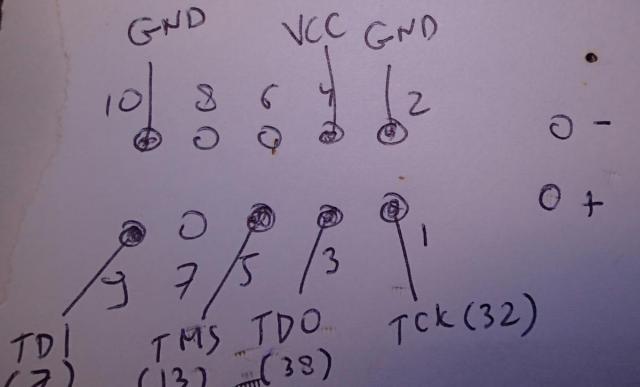 GND VCC GND
10 8 6 4 2
-
+
9 7 5 3 1
TDI TMS TDO TCK (32)
(7) (13) (38)